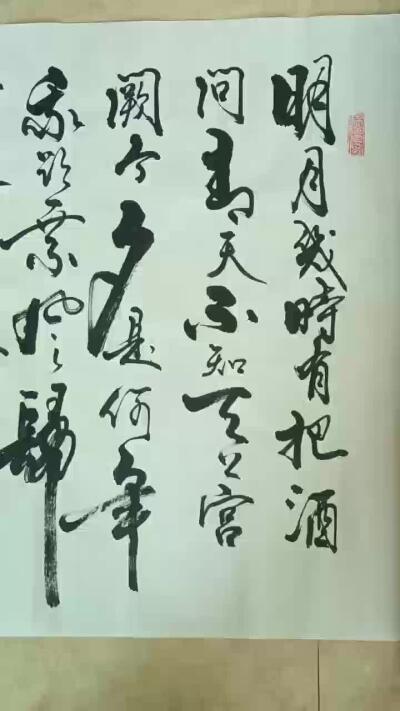 明月幾時有把酒
問青天不知天上宮
闕今夕是何年
我欲乘風歸